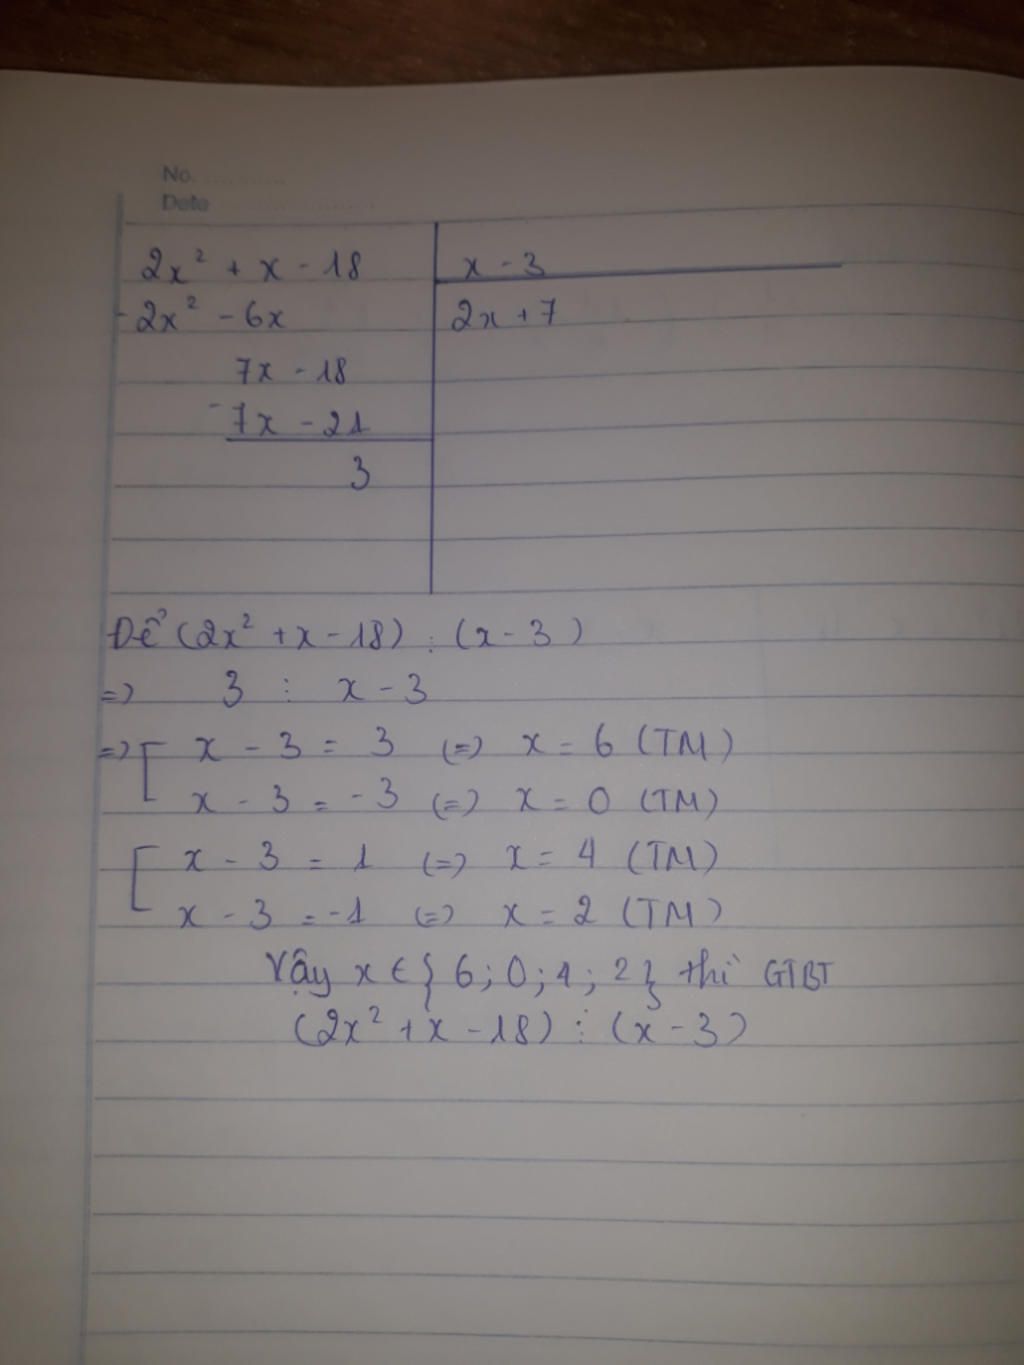 No. ............
Date ........................
2x² + x - 18 | x - 3
- 2x² - 6x | 2x + 7
7x - 18
- 7x - 21
3
Để (2x² + x - 18) ⋮ (x - 3)
=> 3 ⋮ x - 3
=> [ x - 3 = 3 (=) x = 6 (TM)
x - 3 = -3 (=) x = 0 (TM)
[ x - 3 = 1 (=) x = 4 (TM)
x - 3 = -1 (=) x = 2 (TM)
Vậy x ∈ { 6 ; 0 ; 4 ; 2 } thì GTBT
(2x² + x - 18) ⋮ (x - 3)